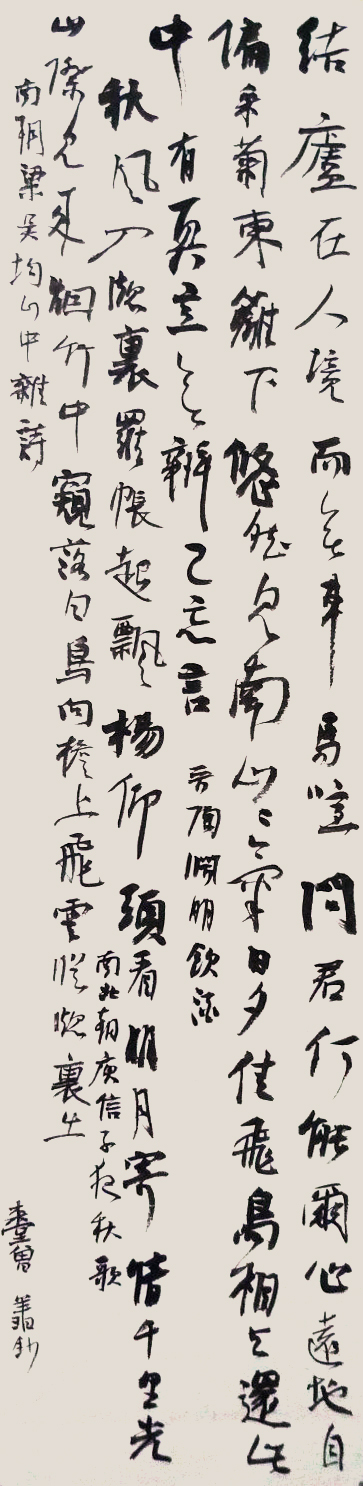 結廬在人境而無車馬喧問君何能爾心遠地自
偏采菊東籬下悠然見南山〻氣日夕佳飛鳥相與還此
中有真意欲辨已忘言
晉陶淵明飲酒
秋風入窗裏羅帳起飄楊仰頭看明月寄情千里光
南北朝庾信子夜秋歌
山際見來烟竹中窺落日鳥向檐上飛雲從窗裏出
南朝梁吳均山中雜詩